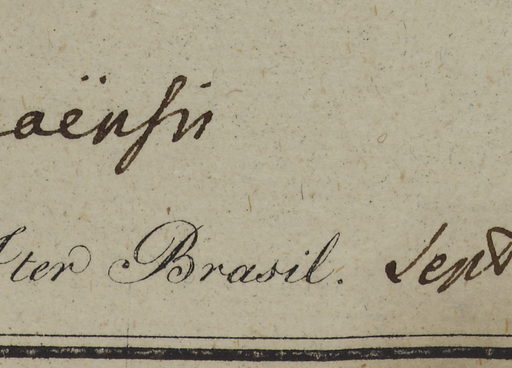 aënsis
Iter Brasil. Sept